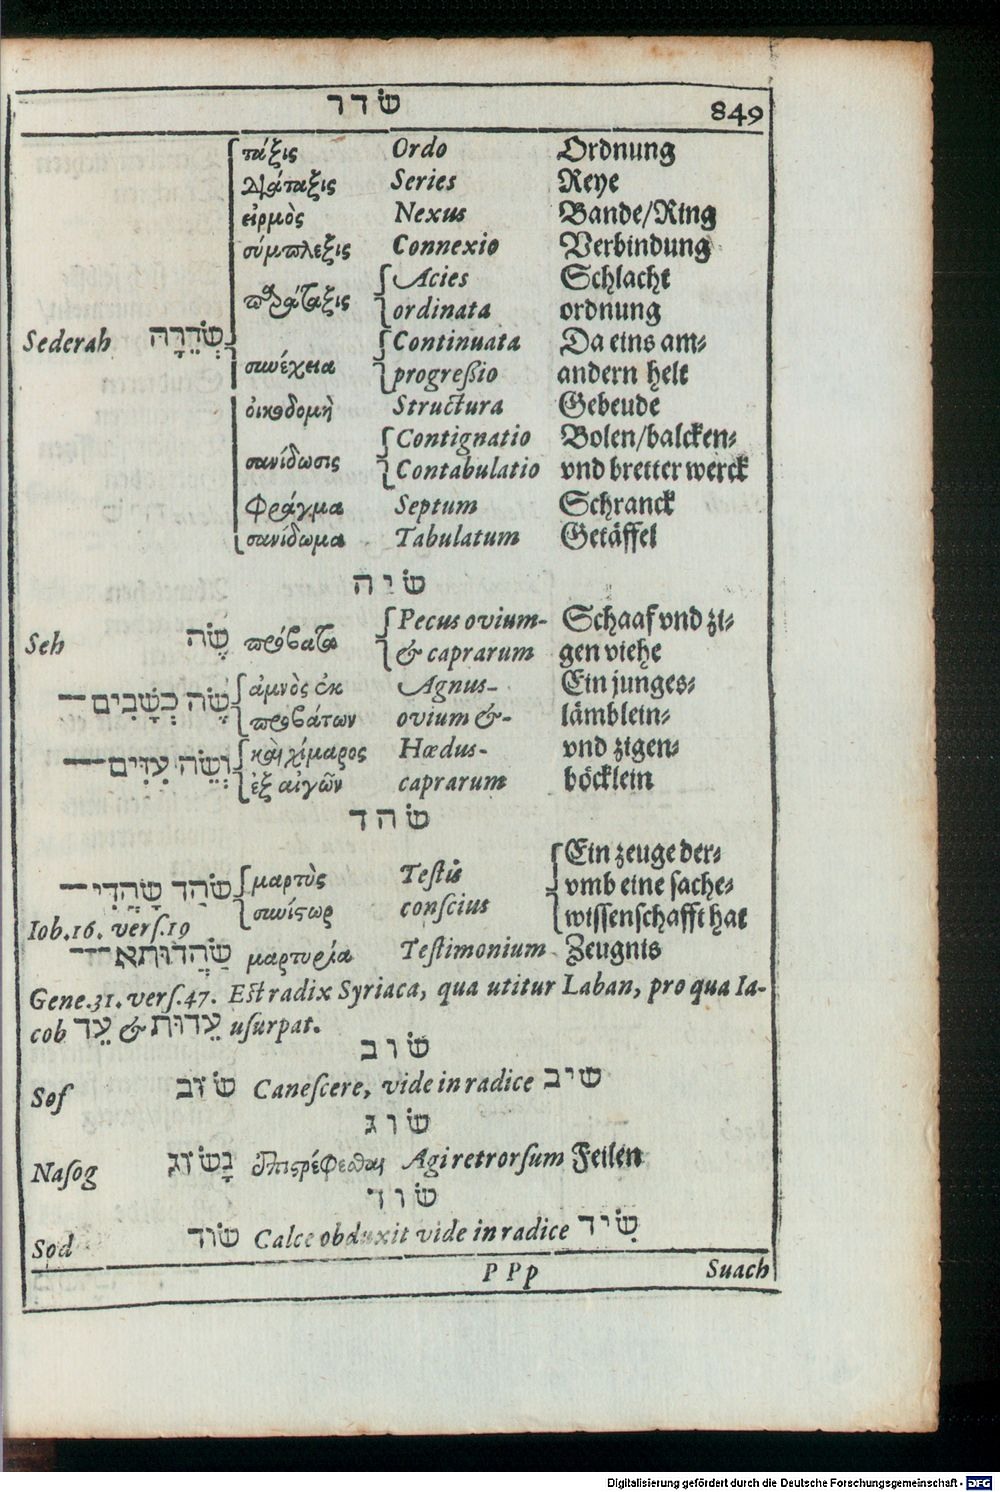 שׂדר 849
τάξις Ordo Ordnung
διάταξις Series Reye
εἱρμὸς Nexus Bande/Ring
σύμπλεξις Connexio Verbindung
Acies Schlacht
παράταξις ordinata ordnung
Sederah שְׂדֵרָה Continuata Da eins am⸗
συνέχεια progreßio andern helt
οἰκοδομὴ Structura Gebeude
Contignatio Bolen/balcken⸗
σανίδωσις Contabulatio vnd bretter werck
Φράγμα Septum Schranck
σανίδωμα Tabulatum Getäffel
שׂיה
Pecus ovium- Schaaf vnd zi⸗
Seh שֶׂה πρόβατον & caprarum gen viehe
שֶׂה כְשָׂבִים ἀμνὸς ἐκ Agnus- Ein junges⸗
προβάτων ovium &- lämblein⸗
וְשֵׂה עִזִּים καὶ χίμαρος Hædus- vnd zigen⸗
ἐξ αἰγῶν caprarum böcklein
שׂהד
Ein zeuge der⸗
שׂהַד שָׂהֲדִי μαρτὺς Teſtis vmb eine sache⸗
συνίστωρ conſcius wissenschafft hat
Iob.16. verſ.19
שַׂהֲדוּתא μαρτυρία Teſtimonium Zeugnis
Gene.31. verſ.47. Eſt radix Syriaca, qua utitur Laban, pro qua Ia-
cob עֵד & עֵדוּת uſurpat.
שׂוב
Sof שׂוּב Caneſcere, vide in radice שׂיב
שׂוג
Naſog נָשׂוֹג ἐπιστρέφεσθαι Agi retrorſum Feilen
שׂוד
Sod שׂוד Calce obduxit vide in radice שִׂיד
P Pp Suach
Digitalisierung gefördert durch die Deutsche Forschungsgemeinschaft - DFG